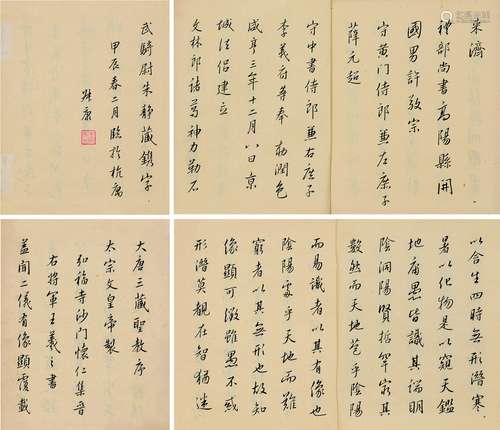 大唐三藏聖教序
太宗文皇帝製
弘福寺沙門懷仁集晉
右將軍王羲之書
蓋聞二儀有像顯覆載
以含生四時無形潛寒
暑以化物是以窺天鑑
地庸愚皆識其端明
陰洞陽賢哲罕窮其
數然而天地苞乎陰陽
而易識者以其有像也
陰陽處乎天地而難
窮者以其無形也故知
像顯可徵雖愚不惑
形潛莫覩在智猶迷
來濟
禮部尚書高陽縣開
國男許敬宗
守黃門侍郎兼左庶子
薛元超
守中書侍郎兼右庶子
李義府等奉 勅潤色
咸亨三年十二月八日京
城法侶建立
文林郎諸葛神力勒石
武騎尉朱靜藏鐫字
甲辰春二月臨於杭寓
康